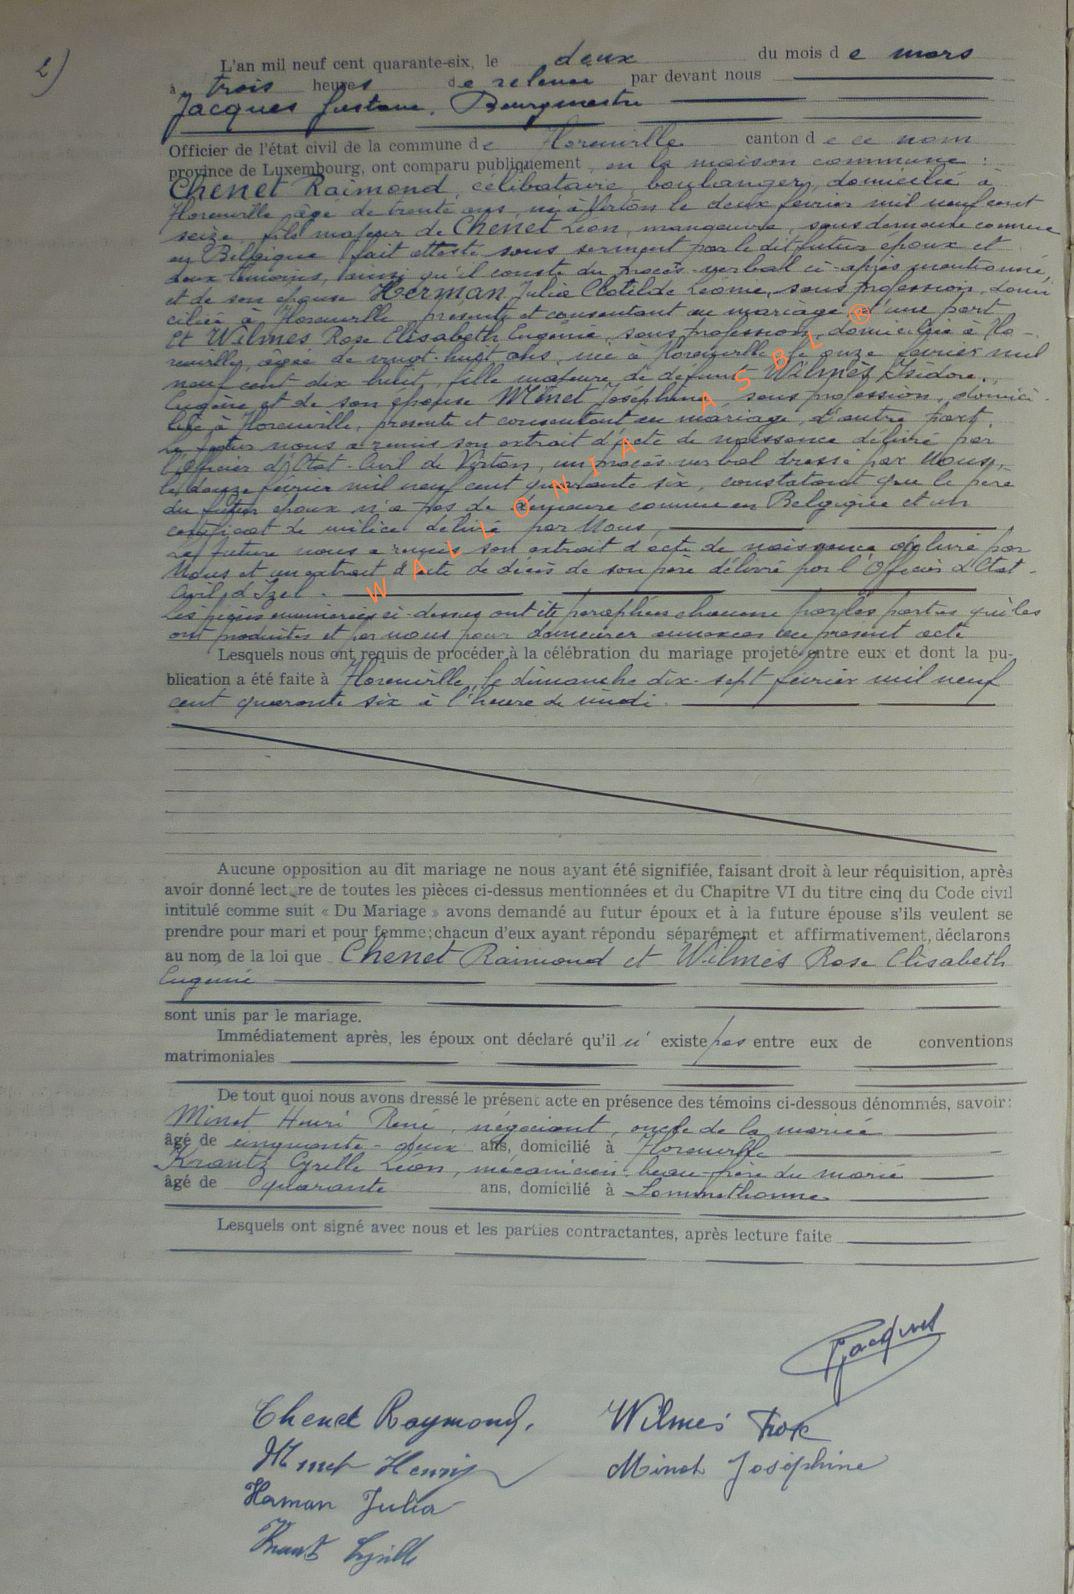 2)
L'an mil neuf cent quarante-six, le deux du mois de mars
à trois heures de relevée par devant nous
Jacques Gustave, Bourgmestre
Officier de l'état civil de la commune de Florenville canton de ce nom
province de Luxembourg, ont comparu publiquement en la maison commune :
Chenet Raimond, célibataire, boulanger, domicilié à
Florenville, âgé de trente ans, né à Virton le deux février mil neuf cent
seize, fils majeur de Chenet Léon, manœuvre, sans demeure connue
en Belgique (fait attesté sous serment par le dit futur époux et
deux témoins, ainsi qu'il conste du procès-verbal ci-après mentionné,
et de son épouse Herman Julia Clotilde Léonie, sans profession, domi
ciliée à Florenville, présente et consentant au mariage d'une part
Et Wilmès Rose Elisabeth Eugénie, sans profession, domiciliée à Flo-
renville, âgée de vingt-huit ans, née à Florenville le onze février mil
neuf cent dix huit, fille majeure de défunt Wilmès Isidore
Eugène et de son épouse Minet Joséphine, sans profession, domici-
liée à Florenville, présente et consentant au mariage, d'autre part.
Le futur nous a remis son extrait d'acte de naissance délivré par
l'Officier d'Etat-Civil de Virton, un procès verbal dressé par Nous,
le douze février mil neuf cent quarante six, constatant que le père
du futur époux n'a pas de demeure connue en Belgique et un
certificat de milice délivré par Nous,
La future nous a remis son extrait d'acte de naissance délivré par
Nous et un extrait d'acte de décès de son père délivré par l'Officier d'Etat-
Civil d'Izel.
Les pièces énumérées ci-dessus ont été paraphées chacune par les parties qui les
ont produites et par nous pour demeurer annexées au présent acte
Lesquels nous ont requis de procéder à la célébration du mariage projeté entre eux et dont la pu-
blication a été faite à Florenville, le dimanche dix-sept février mil neuf
cent quarante six à l'heure de midi.
Aucune opposition au dit mariage ne nous ayant été signifiée, faisant droit à leur réquisition, après
avoir donné lect re de toutes les pièces ci-dessus mentionnées et du Chapitre VI du titre cinq du Code civil
intitulé comme suit « Du Mariage » avons demandé au futur époux et à la future épouse s'ils veulent se
prendre pour mari et pour femme; chacun d'eux ayant répondu séparément et affirmativement, déclarons
au nom de la loi que Chenet Raimond et Wilmès Rose Elisabeth
Eugénie
sont unis par le mariage.
Immédiatement après, les époux ont déclaré qu'il n' existe pas entre eux de conventions
matrimoniales
De tout quoi nous avons dressé le présent acte en présence des témoins ci-dessous dénommés, savoir:
Minet Henri René, négociant, oncle de la mariée
âgé de cinquante-deux ans, domicilié à Florenville
Krantz Cyrille Léon, mécanicien, beau-frère du marié
âgé de quarante ans, domicilié à Sommethonne
Lesquels ont signé avec nous et les parties contractantes, après lecture faite
GJacques
Chenet Raymond. Wilmès Rose
Minet Henri Minet Joséphine
Herman Julia
Krantz Cyrille
WALLONIA ASBL ®